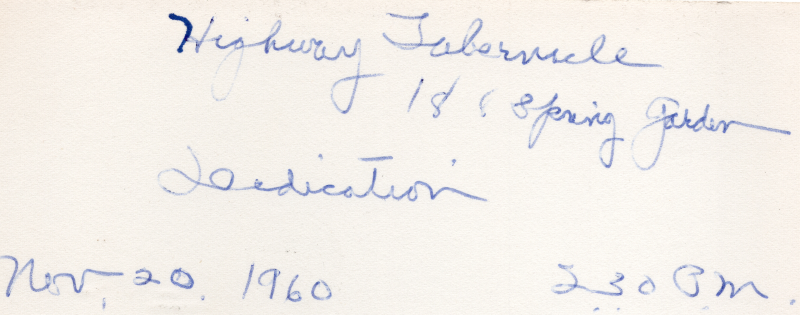 Highway Tabernacle
18 & Spring Garden
Dedication
Nov. 20. 1960 2 30 P.M.